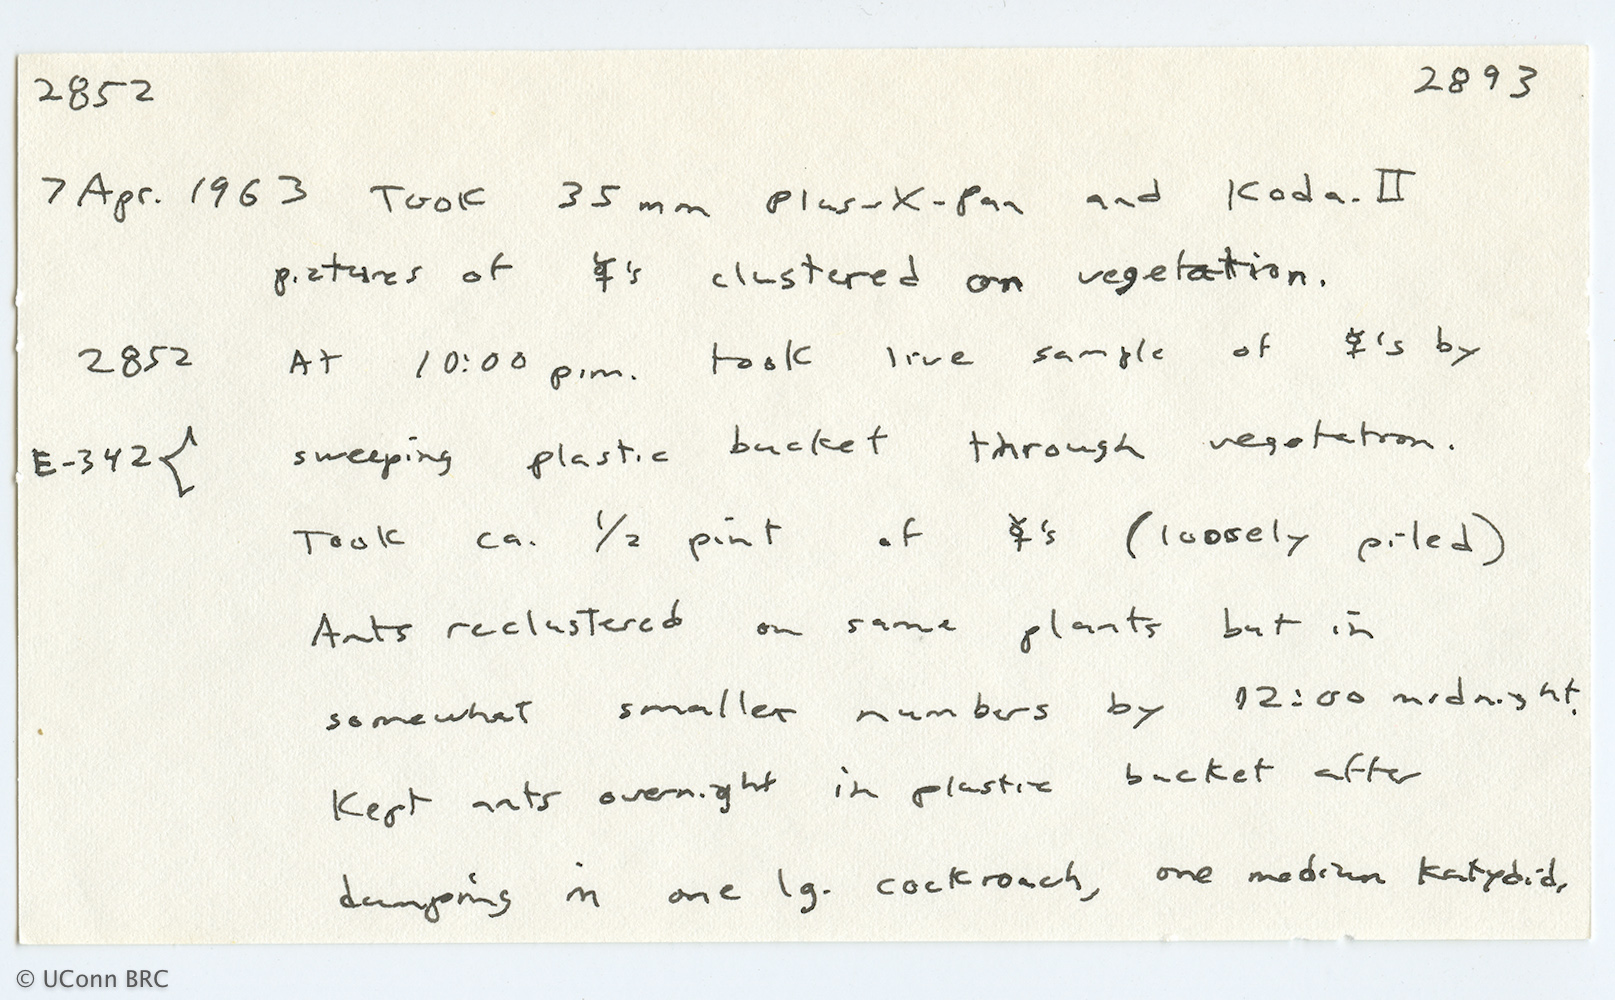 2852 2893
7 Apr. 1963 Took 35 mm Plus-X-Pan and Koda. II
pictures of ☿'s clustered on vegetation.
2852 At 10:00 p.m. took live sample of ☿'s by
E-342{ sweeping plastic bucket through vegetation.
Took ca. 1/2 pint of ☿'s (loosely piled)
Ants reclustered on same plants but in
somewhat smaller numbers by 12:00 midnight.
Kept ants overnight in plastic bucket after
dumping in one lg. cockroach, one medium katydid,
© UConn BRC